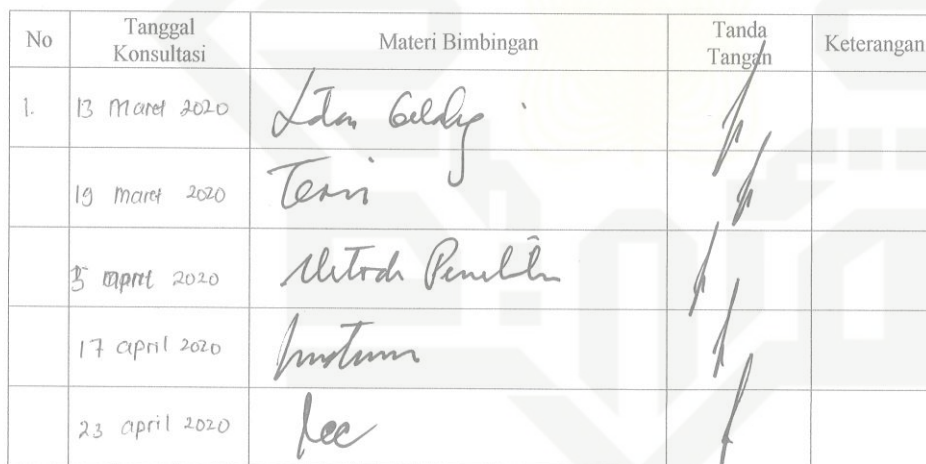 No Tanggal Konsultasi Materi Bimbingan Tanda Tangan Keterangan
1. 13 Maret 2020
19 Maret 2020 Teori
april 2020 Metode Penelitian
17 april 2020
23 april 2020 Acc